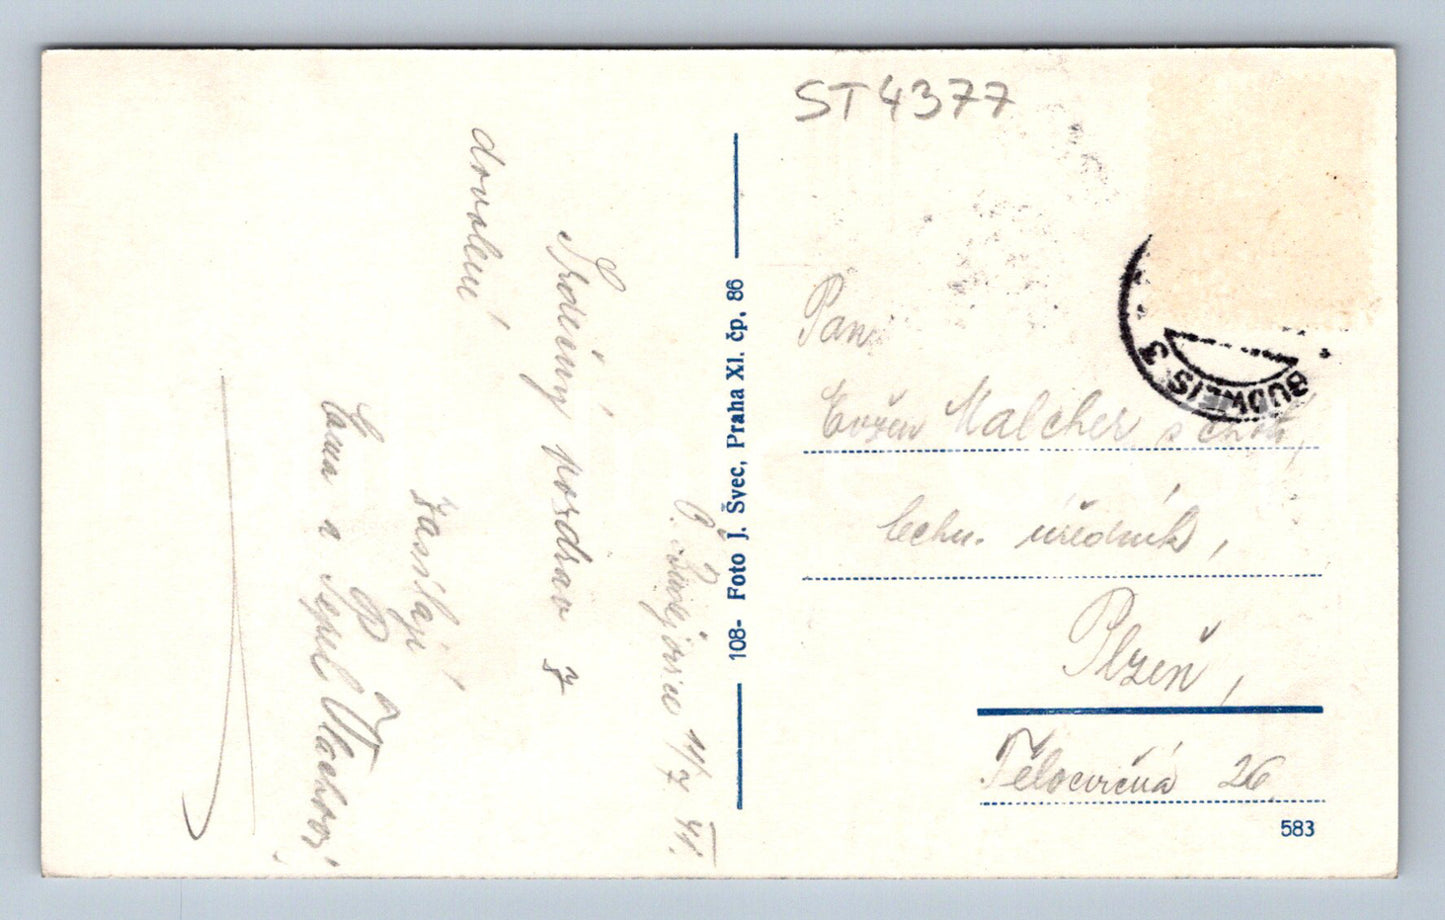 ST4377
Č. Budějovice 11/7 41.
Srdečný pozdrav z
dovolené
zasílají
a Pepil Vlachovi
108- Foto J. Švec, Praha XI. čp. 86
BUDWEIS 3
Pan
Evžen Malcher s chotí,
techn. úředník,
Plzeň,
Tělocvičná 26
583